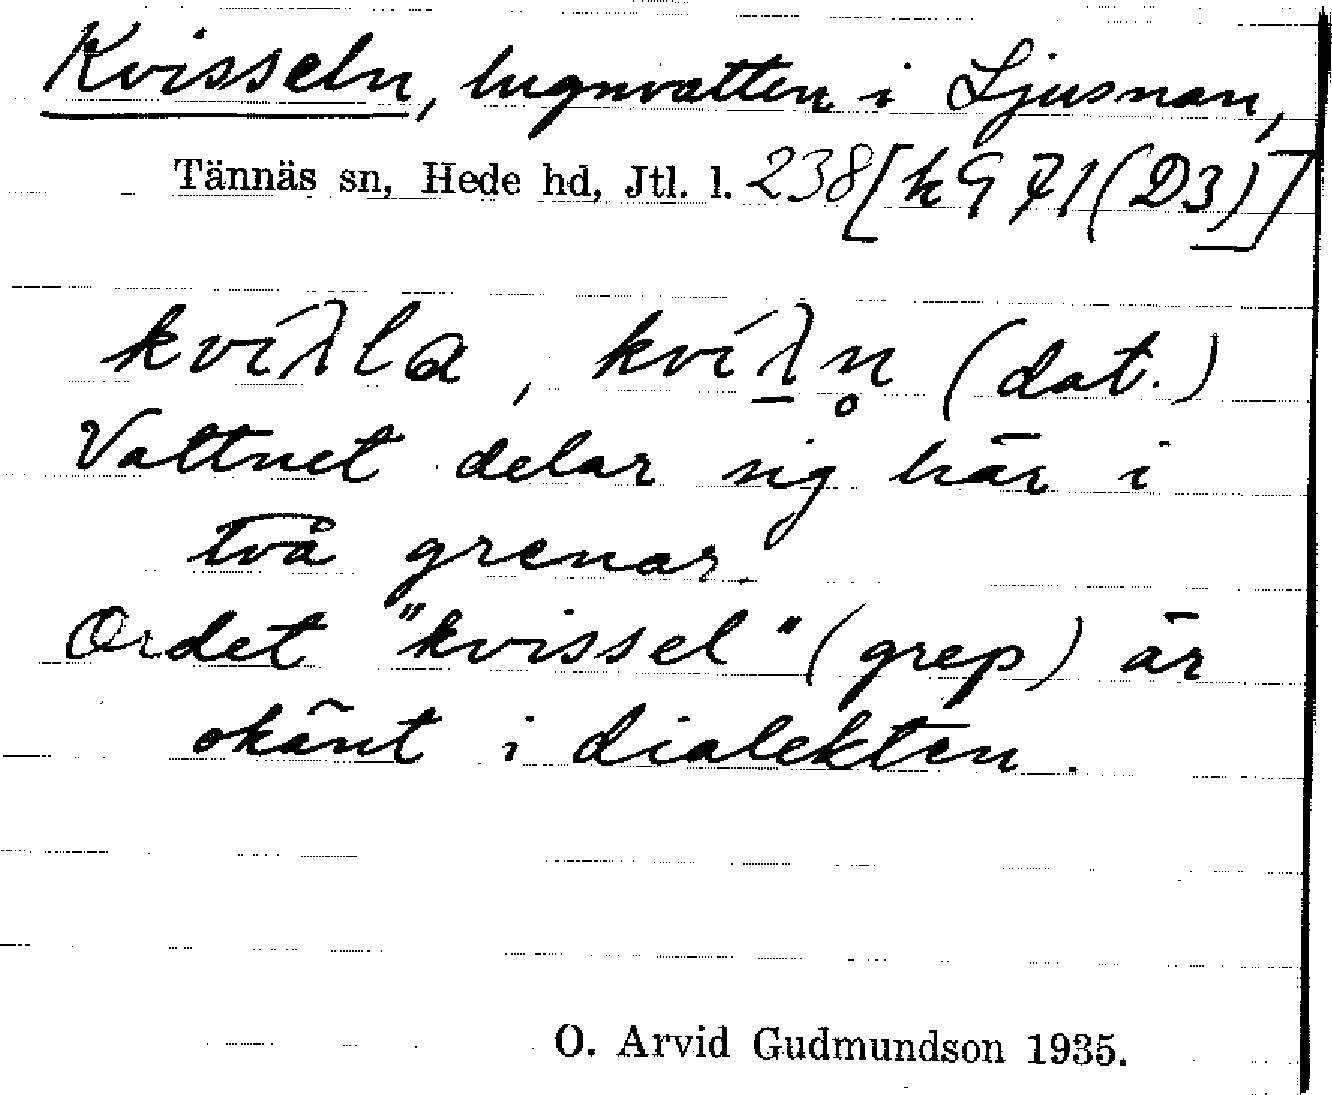 Kvisseln, lugnvatten i Ljusnan,
Tännäs sn, Hede hd, Jtl. l. 238 [k9 71 (D3)]
kvíλla, kvíλ̲n̥ (dat.)
Vattnet delar sig här i
två grenar.
Ordet "kvissel" (grep) är
okänt i dialekten.
O. Arvid Gudmundson 1935.